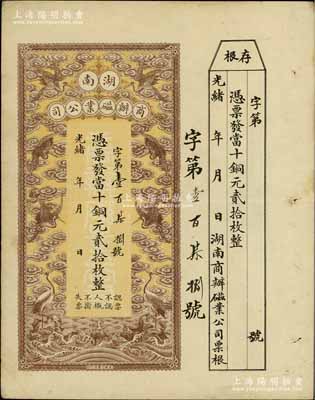 上海陽明拍賣
湖南
商辦磁業公司
字第壹百柒拾捌號
憑票發當十銅元貳拾枚整
光緒 年 月 日
認票不認人
失票不掛
字第壹百柒捌號
存根
字第 號
憑票發當十銅元貳拾枚整
光緒 年 月 日 湖南商辦磁業公司票根
上海陽明拍賣